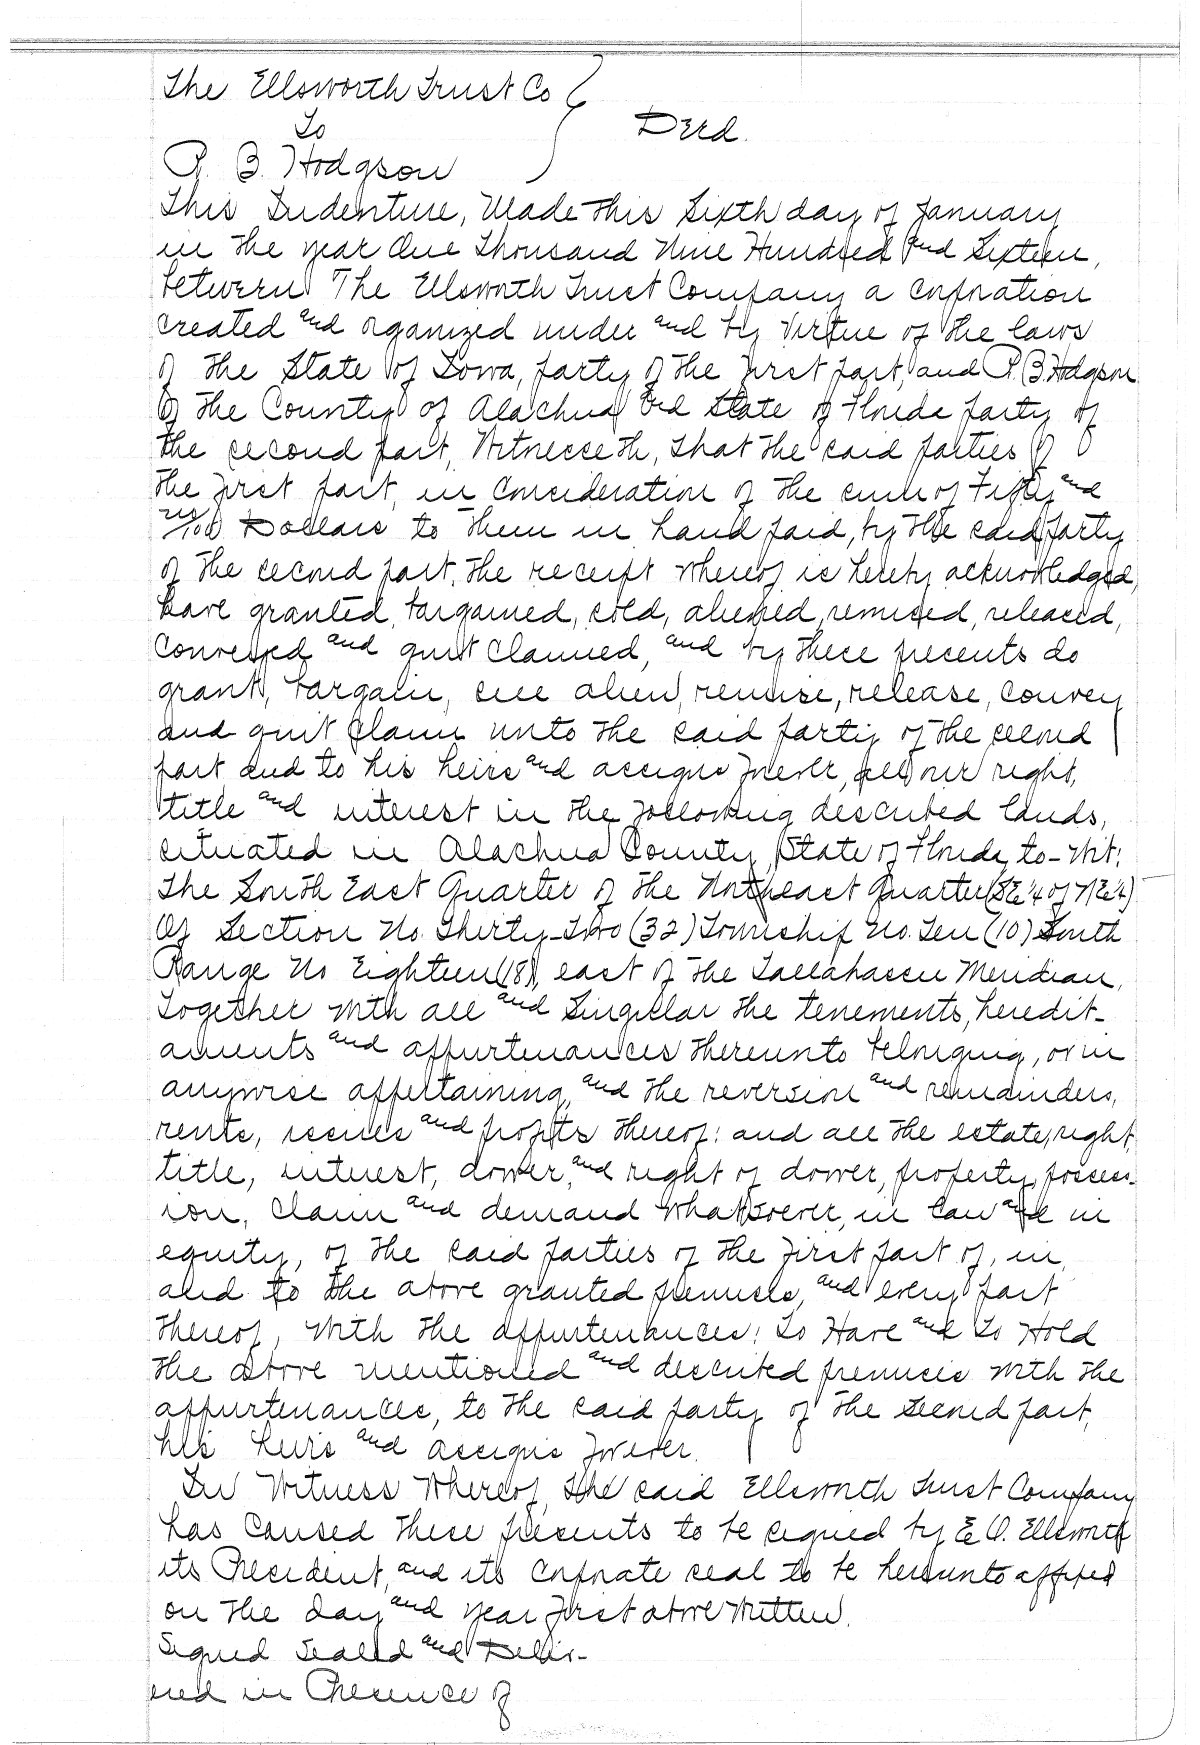 The Ellsworth Trust Co
To
Deed.
P. B. Hodgson
This Indenture, Made this Sixth day of January
in the year One Thousand Nine Hundred and Sixteen,
between The Ellsworth Trust Company a corporation
created and organized under and by virtue of the laws
of the State of Iowa, party of the first part, and P. B. Hodgson
of the County of Alachua and State of Florida party of
the second part, Witnesseth, that the said parties of
the first part, in consideration of the sum of Fifty and
no/100 Dollars to them in hand paid, by the said party
of the second part, the receipt whereof is hereby acknowledged,
have granted, bargained, sold, aliened, remised, released,
conveyed and quit claimed, and by these presents do
grant, bargain, sell alien, remise, release, convey
and quit claim unto the said party of the second
part and to his heirs and assigns forever, all our right,
title and interest in the following described lands,
situated in Alachua County State of Florida, to-wit:
The South East Quarter of the Northeast Quarter (SE¼ of NE¼)
Of Section No. Thirty-Two (32) Township No. Ten (10) South
Range No Eighteen (18), east of the Tallahassee Meridian.
Together with all and Singular the tenements, heredit-
aments and appurtenances thereunto belonging, or in
anywise appertaining, and the reversion and remainders,
rents, issues and profits thereof: and all the estate, right,
title, interest, dower, and right of dower, property, possess-
ion, claim and demand whatsoever, in law and in
equity, of the said parties of the first part of, in,
and to the above granted premises, and every part
thereof, with the appurtenances: To Have and To Hold
the above mentioned and described premises with the
appurtenances, to the said party of the second part,
his heirs and assigns forever.
In Witness Whereof, the said Ellsworth Trust Company
has caused these presents to be signed by E. O. Ellsworth
its President, and its corporate seal to be hereunto affixed
on the day and year first above written.
Signed Sealed and Deliv-
ered in Presence of